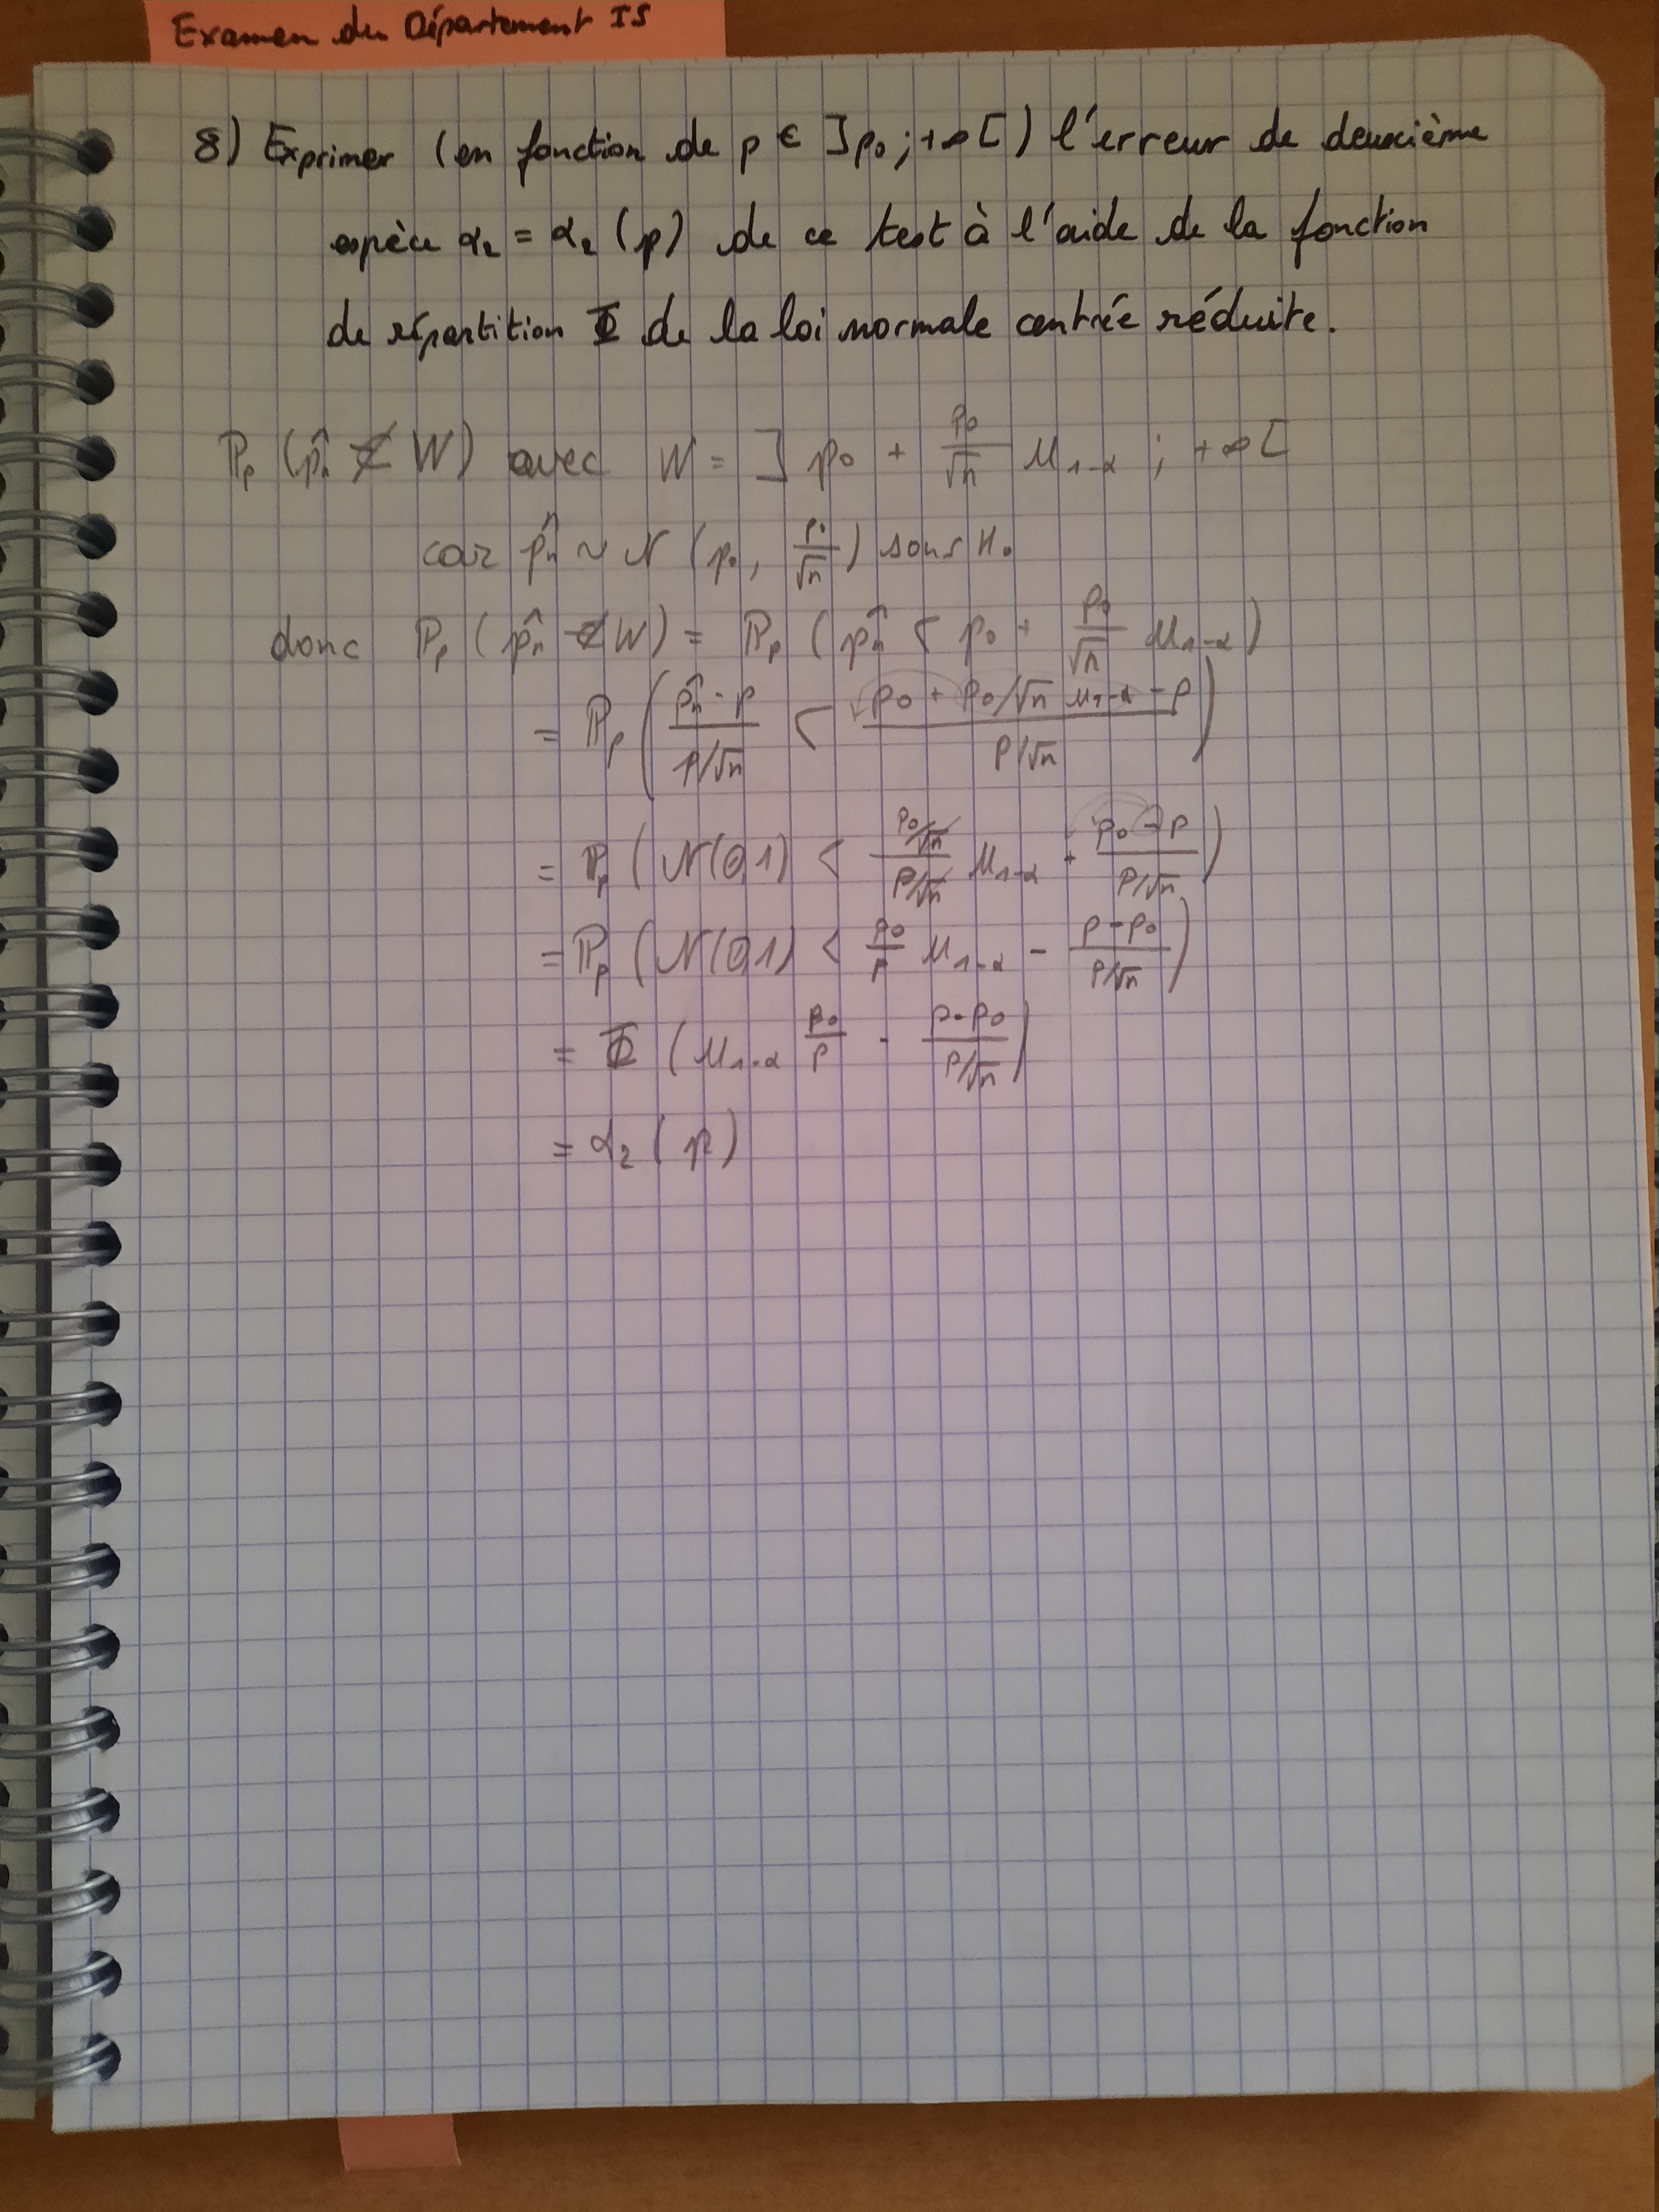 Examen du Département IS
8) Exprimer (en fonction de p ∈ ]p₀ ; +∞[) l'erreur de deuxième
espèce α₂ = α₂(p) de ce test à l'aide de la fonction
de répartition Φ de la loi normale centrée réduite.
ℙₚ (p̂ₙ ∉ W) avec W = ] p₀ + p₀/√n u₁₋α ; +∞[
car p̂ₙ ~ N (p₀, p₀/√n) sous H₀
donc ℙₚ (p̂ₙ ∉ W) = ℙₚ (p̂ₙ < p₀ + p₀/√n u₁₋α)
= ℙₚ ( (p̂ₙ - p)/(p/√n) < (p₀ + p₀/√n u₁₋α - p)/(p/√n) )
= ℙₚ ( N(0,1) < (p₀/√n)/(p/√n) u₁₋α + (p₀ - p)/(p/√n) )
= ℙₚ ( N(0,1) < p₀/p u₁₋α - (p - p₀)/(p/√n) )
= Φ ( u₁₋α p₀/p - (p - p₀)/(p/√n) )
= α₂ (p)